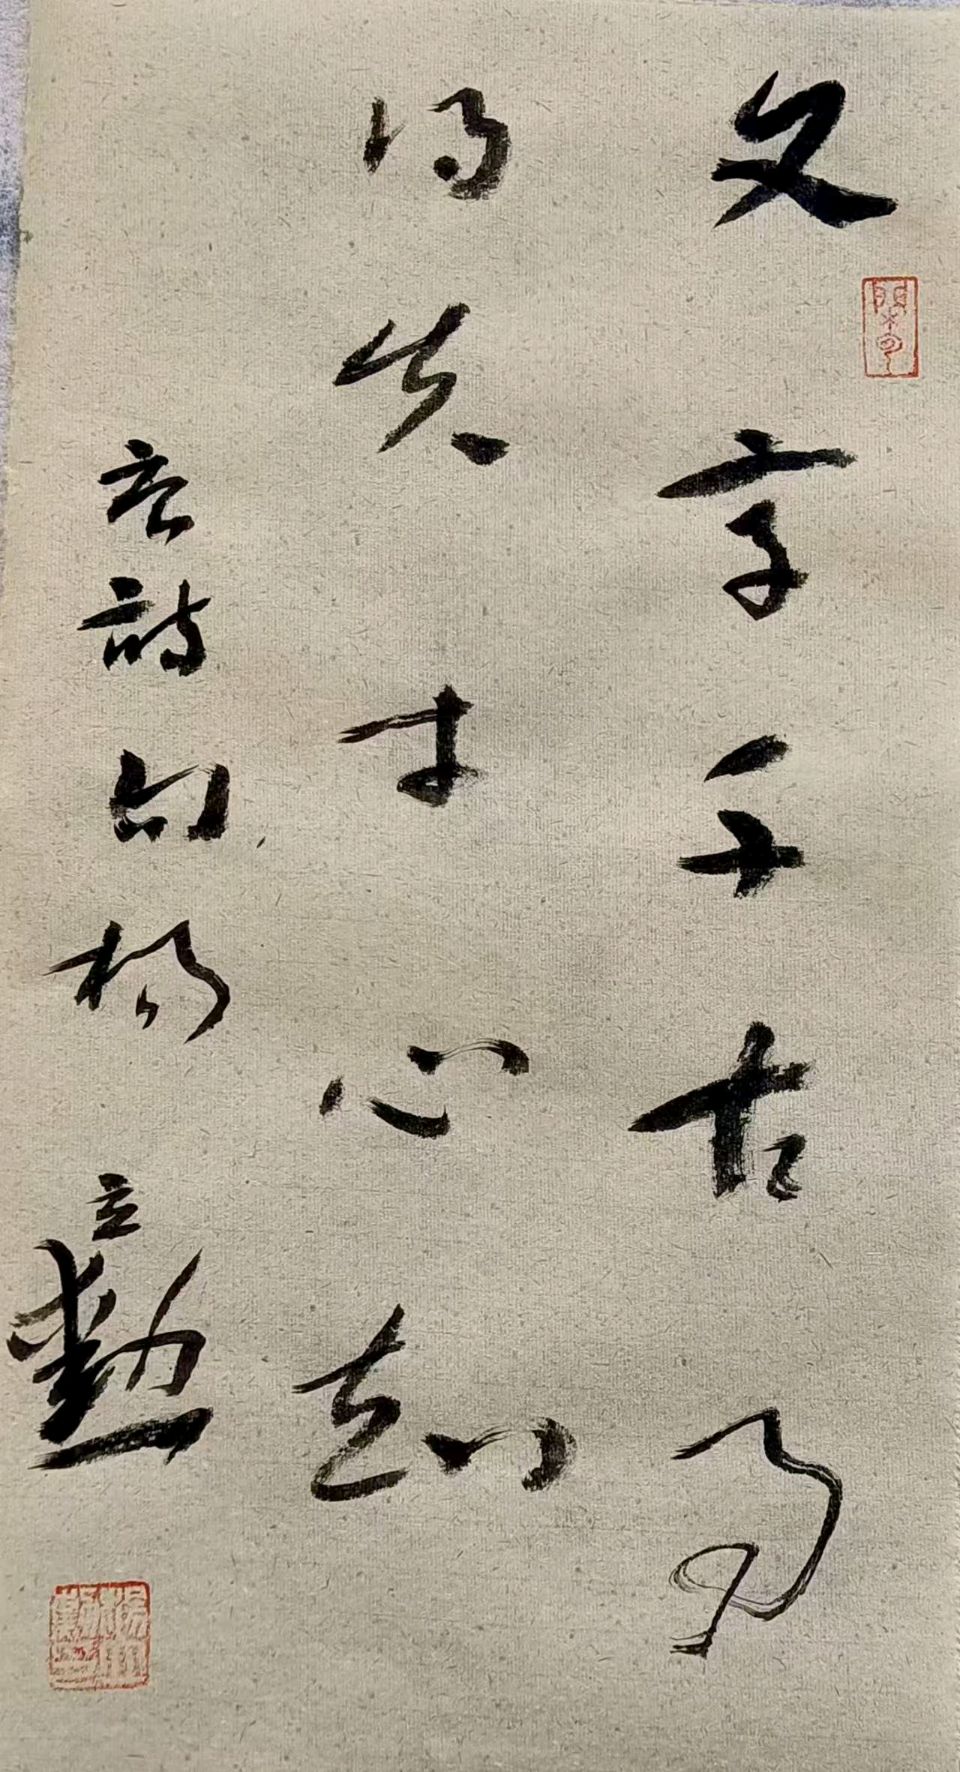 文章千古事
得失寸心知
唐詩句楊立勳